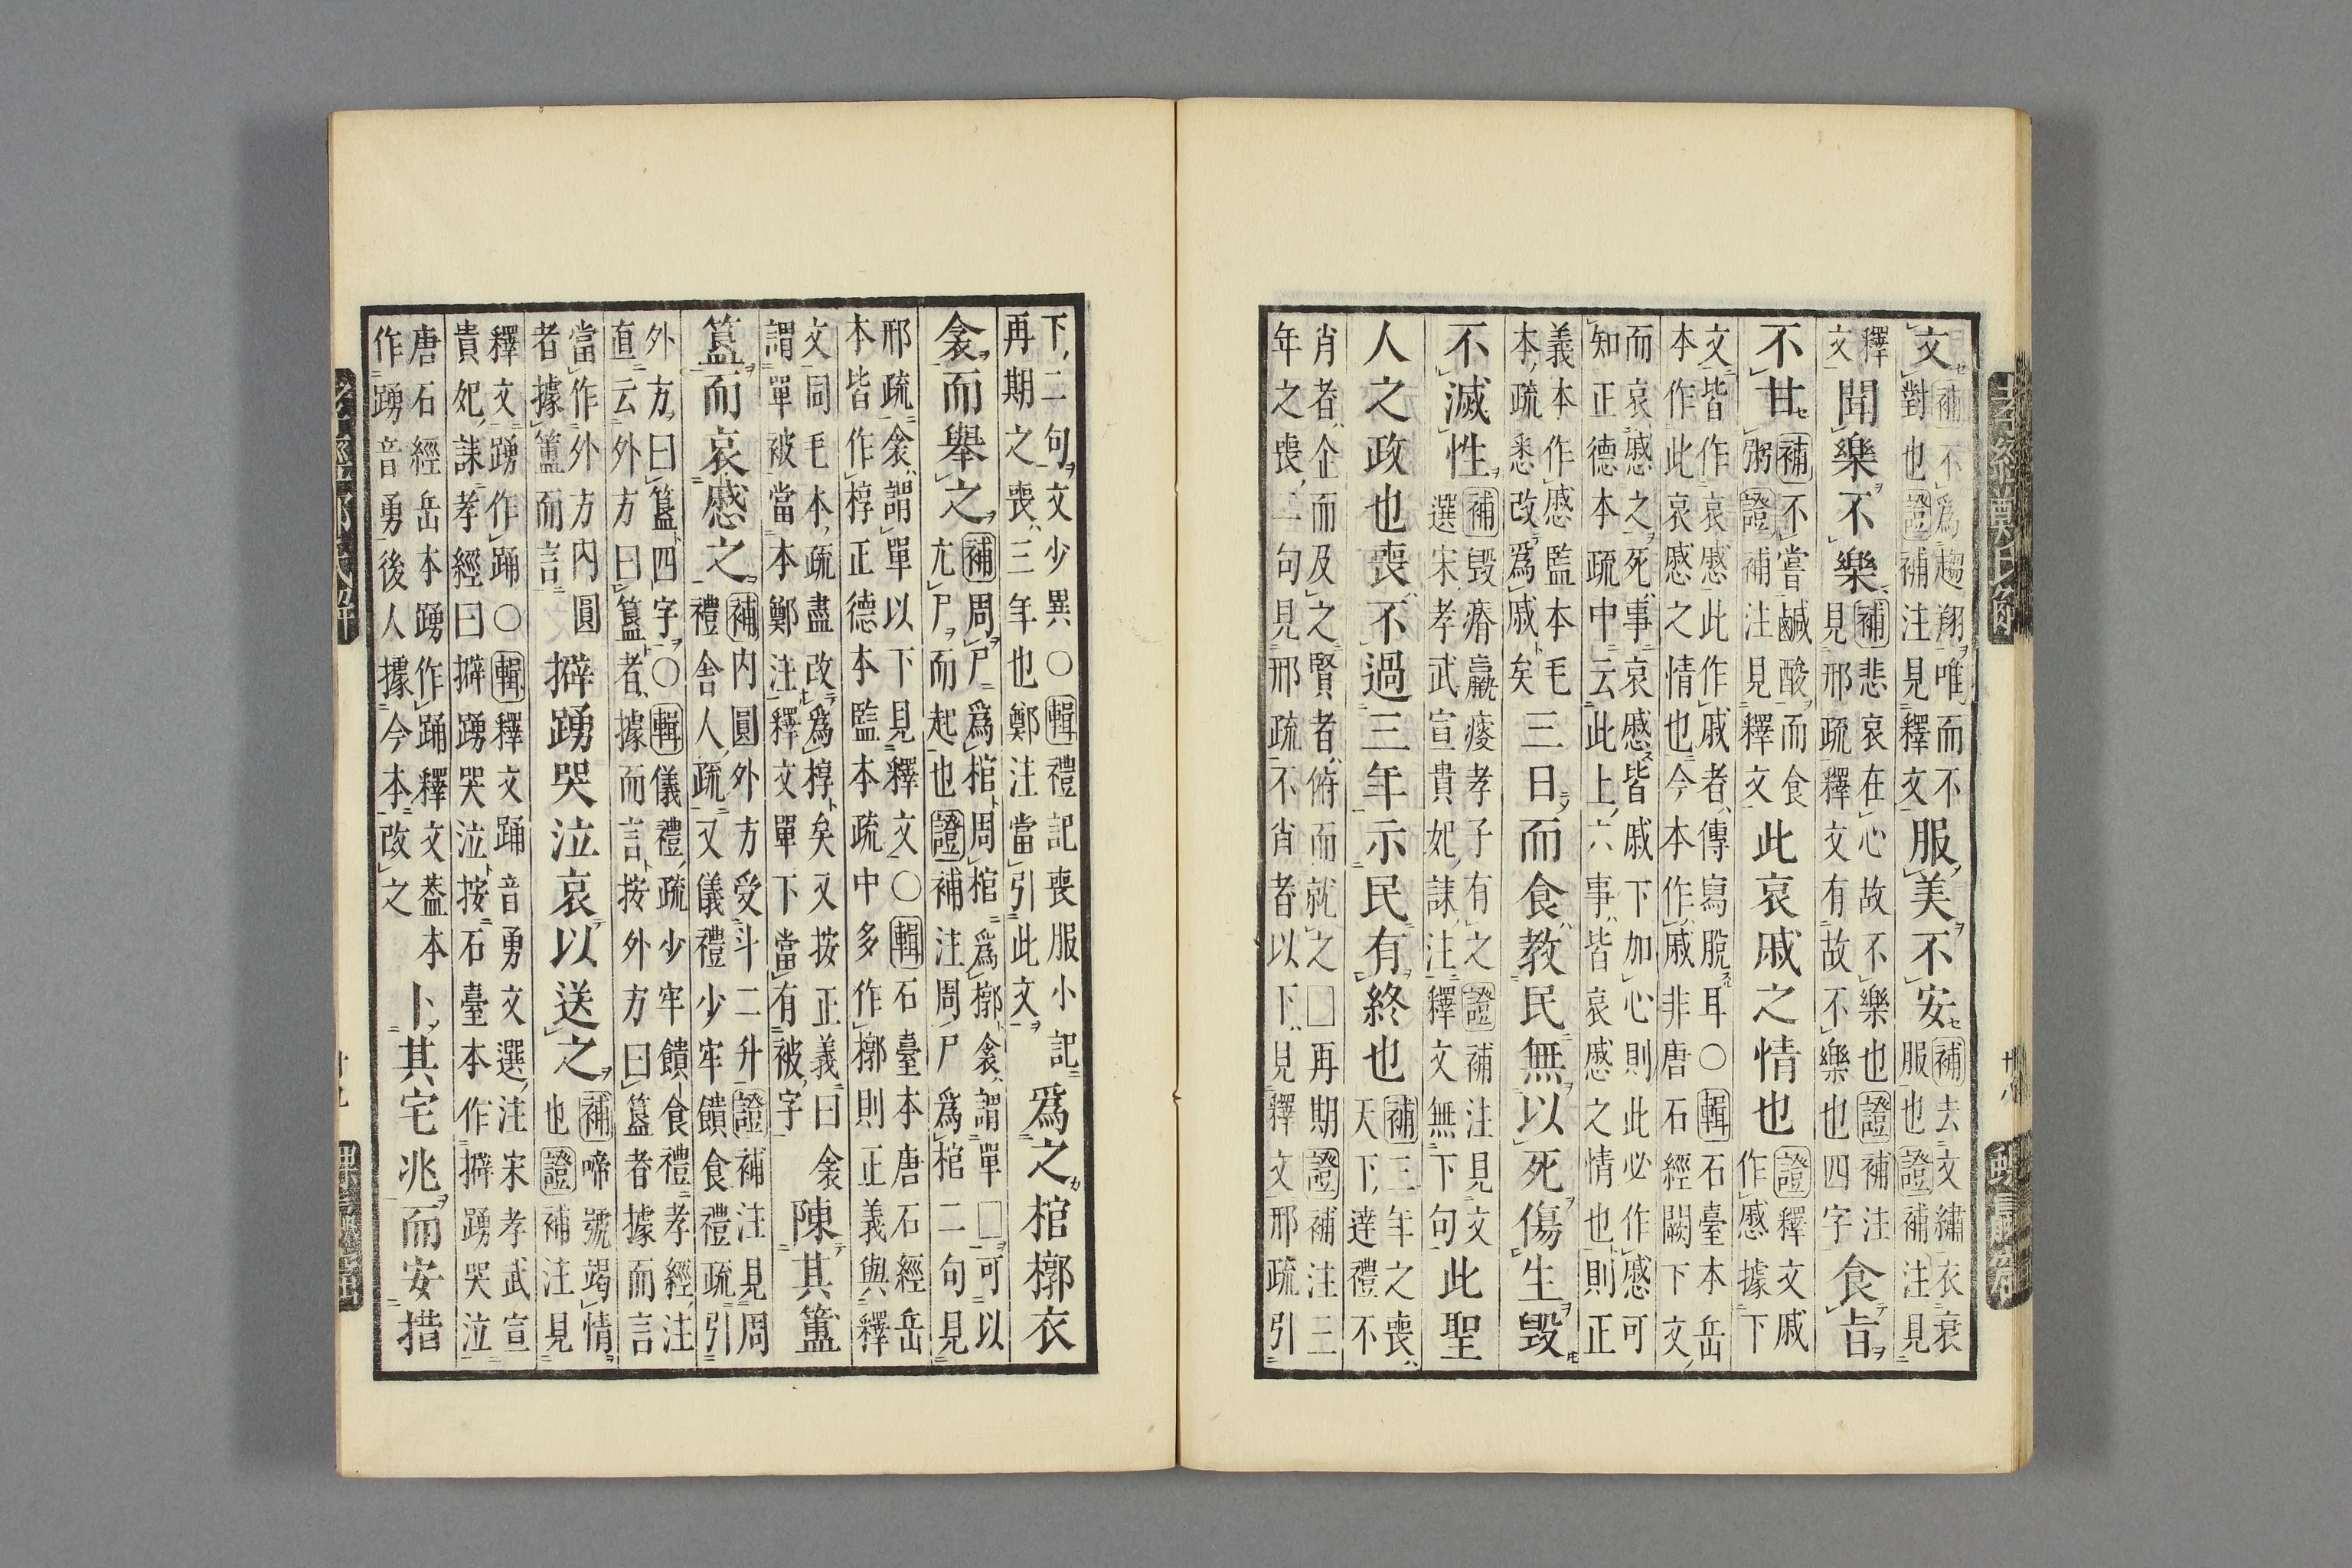 文補不爲趨翔唯而不對也證補注見釋文服美不安補去文繡衣衰服也證補注見
釋文聞樂不樂補悲哀在心故不樂也證補注見邢疏釋文有故不樂也四字食旨
不甘補不嘗鹹酸而食粥證補注見釋文此哀戚之情也證釋文戚作慼據下
文皆作哀慼此作戚者傳寫脫耳○輯石臺本岳本作此哀慼之情也今本作戚非唐石經闕下文
而哀慼之死事哀慼皆戚下加心則此必作慼可知正德本疏中云此上六事皆哀慼之情也則正
義本作慼監本毛本疏悉改爲戚矣三日而食教民無以死傷生毀
不滅性補毀瘠羸瘦孝子有之證補注見文選宋孝武宣貴妃誄注釋文無下句此聖
人之政也喪不過三年示民有終也補三年之喪天下達禮不
肖者企而及之賢者俯而就之□再期證補注三年之喪二句見邢疏不肖者以下見釋文邢疏引
下二句文少異○輯禮記喪服小記再期之喪三年也鄭注當引此文爲之棺槨衣
衾而舉之補周尸爲棺周棺爲槨衾謂單□可以亢尸而起也證補注周尸爲棺二句見
邢疏衾謂單以下見釋文○輯石臺本唐石經岳本皆作椁正德本監本疏中多作槨則正義與釋
文同毛本疏盡改爲椁矣又按正義曰衾謂單被當本鄭注釋文單下當有被字陳其簠
簋而哀慼之補内圓外方受斗二升證補注見周禮舍人疏又儀禮少牢饋食禮疏引
外方曰簋四字○輯儀禮疏少牢饋食禮孝經注直云外方曰簋者據而言按外方曰簋者據而言
當作外方内圓者據簠而言擗踴哭泣哀以送之補啼號竭情也證補注見
釋文踴作踊○輯釋文踊音勇文選注宋孝武宣貴妃誄孝經曰擗踴哭泣按石臺本作擗踴哭泣
唐石經岳本踴作踊釋文葢本作踴音勇後人據今本改之卜其宅兆而安措